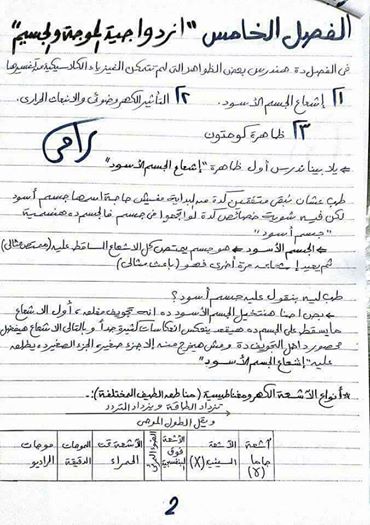 الفصل الخامس "ازدواجية الموجة والجسيم"
فى الفصل ده هندرس بعض الظواهر التى لم تتمكن الفيزياء الكلاسيكية من تفسيرها
١ إشعاع الجسم الأسود. ٢ التأثير الكهروضوئى والانبعاث الحرارى.
٣ ظاهرة كومتون
← يلا بينا ندرس أول ظاهرة "إشعاع الجسم الأسود"
طب عشان نبقى متفقين كدة من البداية مفيش حاجة اسمها جسم أسود
لكن فيه شوية خصائص كدة لو اجتمعوا فى جسم فالجسم ده هنسميه
"جسم أسود"
← الجسم الأسود ← هو جسم يمتص كل الاشعاع الساقط عليه (ممتص مثالى)
ثم يعيد إشعاعه مرة أخرى فهو (باعث مثالى)
طب ليه بنقول عليه جسم أسود؟
← بص احنا هنتخيل الجسم الأسود ده انه تجويف مقفله، أول الاشعاع
ما يسقط على الجسم ده هيقعد ينعكس انعكاسات كتيرة جداً وبالتالى الاشعاع هيفضل
محصور داخل التجويف ده ومش هيخرج منه إلا جزء صغير والجزء الصغير ده يطلق
عليه "إشعاع الجسم الأسود"
* أنواع الأشعة الكهرومغناطيسية (مناطق الطيف المختلفة):-
تزداد الطاقة ويزداد التردد
ويقل الطول الموجى
أشعة جاما (γ) | الأشعة السينية (X) | الأشعة فوق البنفسجية | الضوء المرئى | الأشعة تحت الحمراء | الموجات الدقيقة | موجات الراديو
2